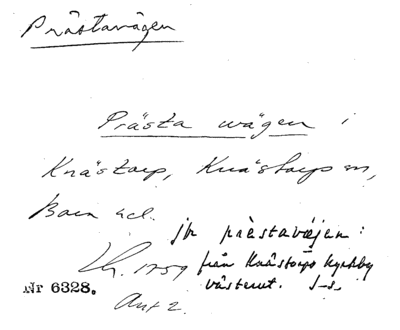 Prästavägen
Prästa wägen i
Knästorp, Knästorps sn,
Bara hd.
jfr prästavägen:
Lh. 1759 från Knästorps kyrkby
Nr 6328. västerut.
Akt 2.